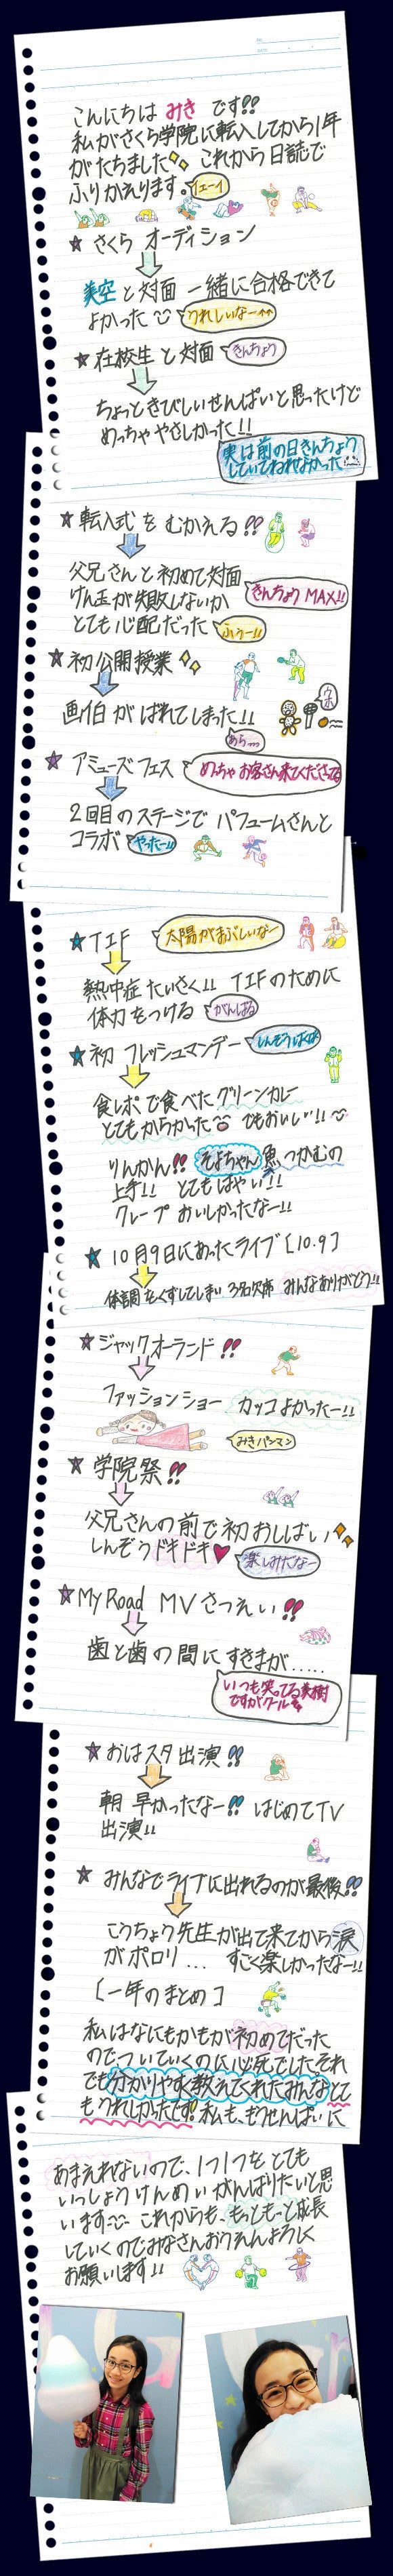 こんにちは みき です!!
私がさくら学院に転入してから1年
がたちました これから日誌で
ふりかえります。 イエーイ
★ さくら オーディション
美空と対面 一緒に合格できて
よかった うれしいなー↑↑
★ 在校生と対面 きんちょう
ちょっときびしいせんぱいと思ったけど
めっちゃやさしかった!!
実は前の日きんちょう
していてねれなかった
★ 転入式をむかえる!!
父兄さんと初めて対面
けん玉が失敗しないか
とても心配だった
きんちょうMAX!!
ふぅー!!
★ 初公開授業
画伯がばれてしまった!!
あちゃー
★ アミューズフェス めっちゃお客さん来てくださってる
2回目のステージで パフュームさんと
コラボ やったー!!
★ TIF 太陽がまぶしいなー
熱中症たいさく!! TIFのために
体力をつける がんばる
★ 初 フレッシュマンデー しんぞうばくばく
食レポで食べたグリーンカレー
とてもからかった でもおいしい!!
りんかん!! そよちゃん 魚つかむの
上手!! とてもはやい!!
クレープ おいしかったなー!!
★ 10月9日にあったライブ [10.9]
体調をくずしてしまい 3名欠席 みんなありがとう!!
★ ジャックオーランド!!
ファッションショー カッコよかったー!!
みきパンマン
★ 学院祭!!
父兄さんの前で初おしばい
しんぞうドキドキ♥ 楽しみだなー
★ My Road MVさつえい!!
歯と歯の間にすきまが.....
いつも笑ってる美樹
ですがクール
★ おはスタ出演!!
朝早かったなー!! はじめてTV
出演!!
★ みんなでライブに出れるのが最後!!
こうちょう先生が出て来てから涙
がポロリ... すごく楽しかったなー!!
[一年のまとめ]
私はなにもかもが初めてだった
のでついていくのに必死でしたそれ
でも分かりやすく教えてくれたみんなとて
もうれしかったです! 私も、もうせんぱいに
あまえれないので、1つ1つをとても
いっしょうけんめいがんばりたいと思
います これからも、もっともっと成長
していくのでみなさんおうえんよろしく
お願いします!!